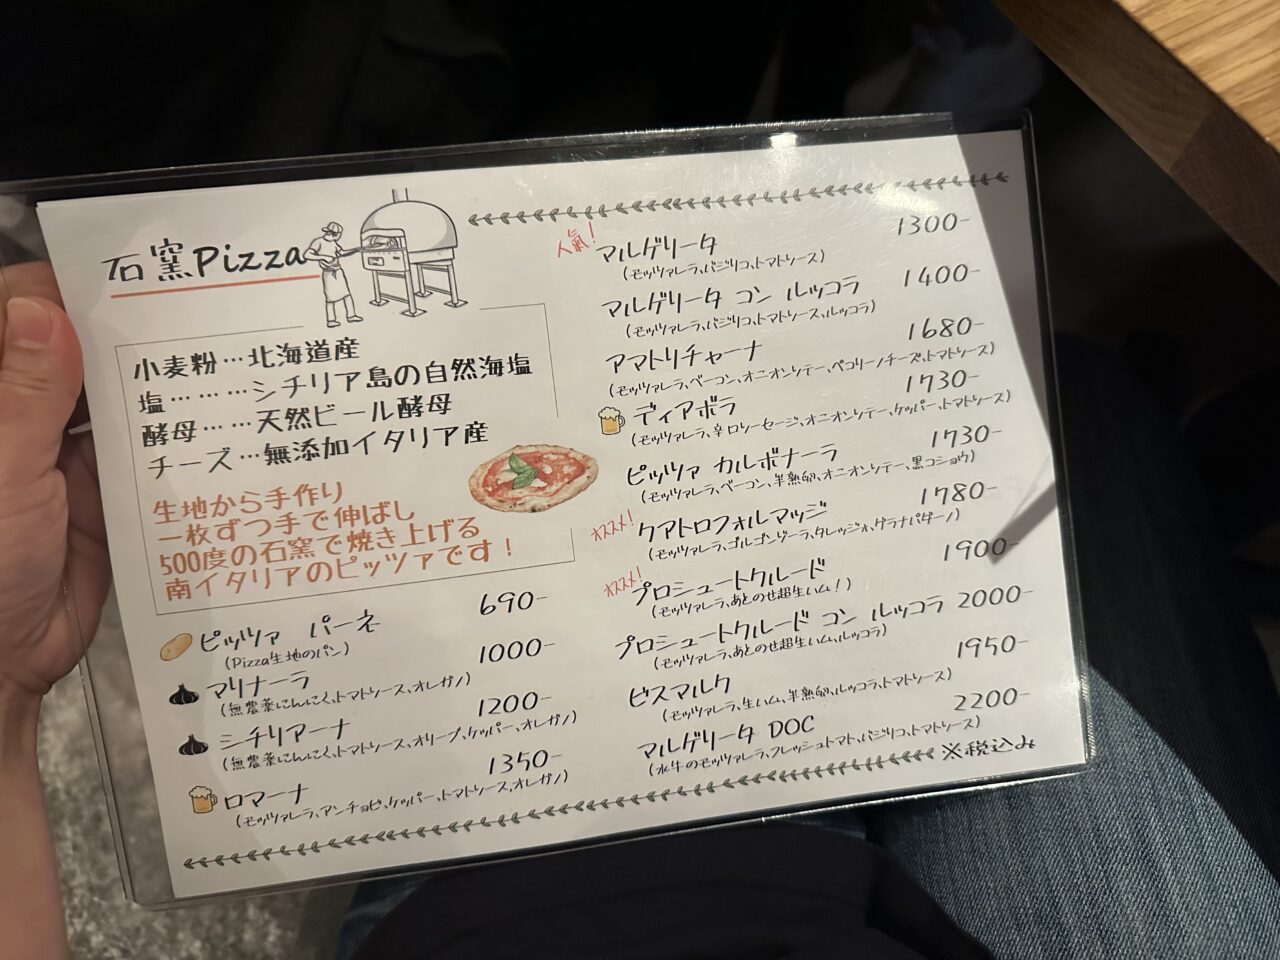 石窯Pizza
小麦粉…北海道産
塩………シチリア島の自然海塩
酵母……天然ビール酵母
チーズ…無添加イタリア産
生地から手作り
一枚ずつ手で伸ばし
500度の石窯で焼き上げる
南イタリアのピッツァです！
ピッツァ パーネ 690-
(Pizza生地のパン)
マリナーラ 1000-
(無農薬にんにく、トマトソース、オレガノ)
シチリアーナ 1200-
(無農薬にんにく、トマトソース、オリーブ、ケッパー、オレガノ)
ロマーナ 1350-
(モッツァレラ、アンチョビ、ケッパー、トマトソース、オレガノ)
人氣！
マルゲリータ 1300-
(モッツァレラ、バジリコ、トマトソース)
マルゲリータ コン ルッコラ 1400-
(モッツァレラ、バジリコ、トマトソース、ルッコラ)
アマトリチャーナ 1680-
(モッツァレラ、ベーコン、オニオンソテー、ペコリーノチーズ、トマトソース)
ディアボラ 1730-
(モッツァレラ、辛口ソーセージ、オニオンソテー、ケッパー、トマトソース)
ピッツァ カルボナーラ 1730-
(モッツァレラ、ベーコン、半熟卵、オニオンソテー、黒コショウ)
オススメ！
クアトロフォルマッジ 1780-
(モッツァレラ、ゴルゴンゾーラ、タレッジォ、グラナパダーノ)
オススメ！
プロシュートクルード 1900-
(モッツァレラ、あとのせ超生ハム！)
プロシュートクルード コン ルッコラ 2000-
(モッツァレラ、あとのせ超生ハム、ルッコラ)
ビスマルク 1950-
(モッツァレラ、生ハム、半熟卵、ルッコラ、トマトソース)
マルゲリータ DOC 2200-
(水牛のモッツァレラ、フレッシュトマト、バジリコ、トマトソース)
※税込み